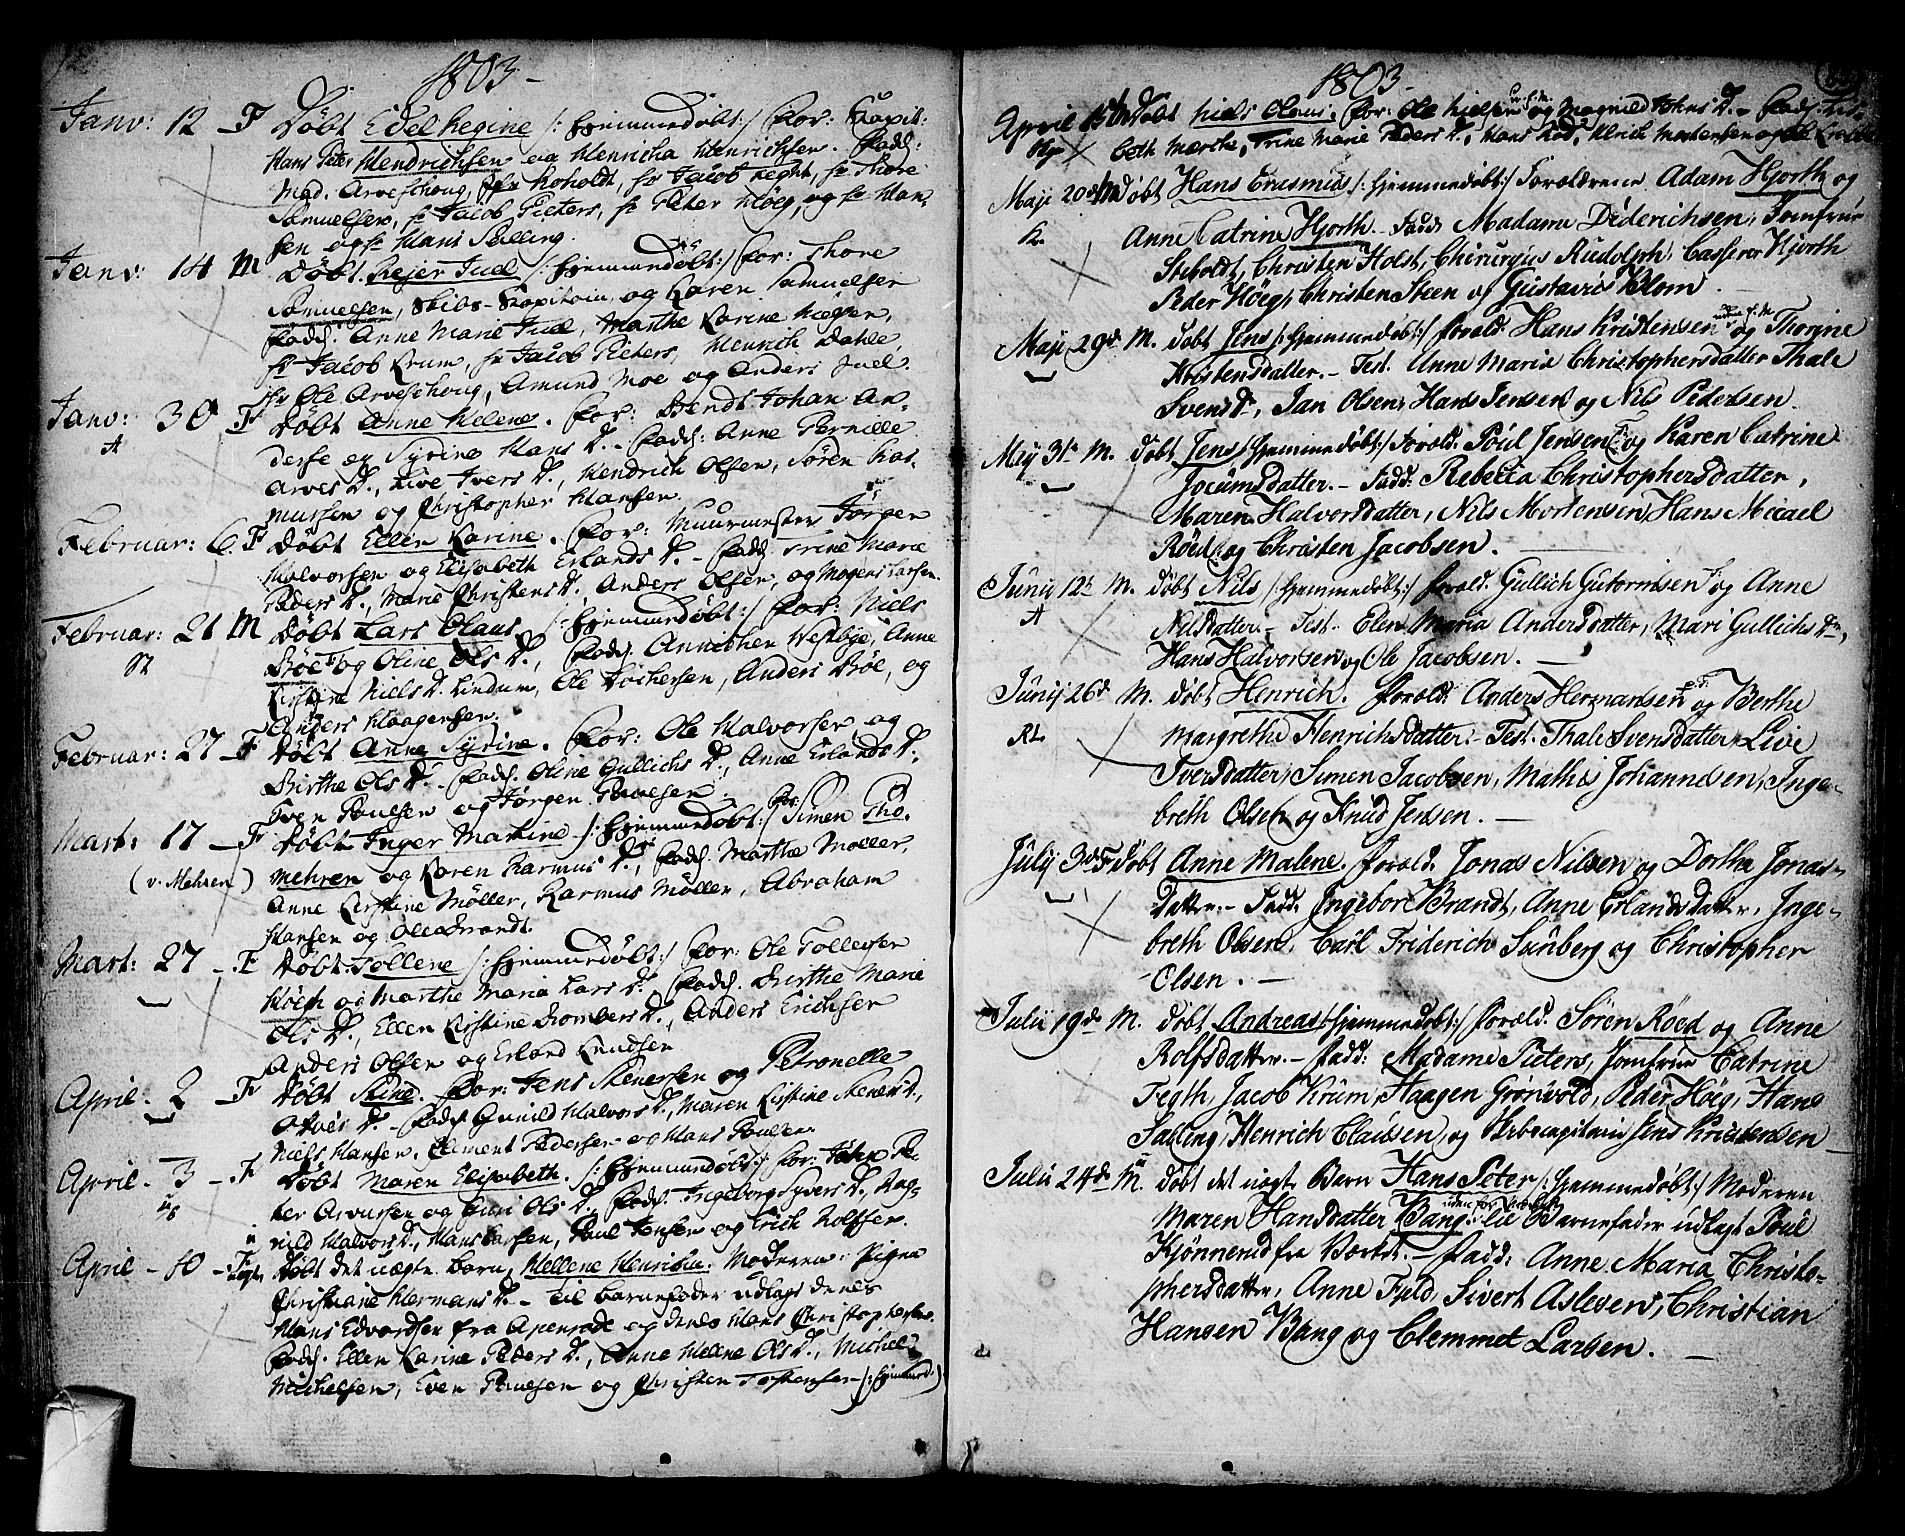 1803 -
Janv: 12 - F Døbt Edel Regine /: hjemmedøbt :/ For: Capit:
Hans Peter Hendrichsen og Henricha Henrichsen. Fadd:
Mad. Arveschoug, Koholdt, hr Jacob Feght, hr Thore
Samuelsen, hr Jacob Pieters, hr Peter Höeg, og hr Han-
sen og hr Hans Salling.
Janv: 14 M Døbt Rejer Juel /: hjemmedøbt :/ For: Thore
Samuelsen, Skibs-Capitain og Karen Samuelsen
Fadd. Anne Marie Juel, Marthe Karine Höegen,
hr Jacob Krum, hr Jacob Pieters, Henrich Dahle,
hr Ole Arveschoug, Amund Moe og Anders Juel.
Janv: 30 F Døbt Anne Helene. For: Bendt Johan An-
A derse og Syrine Hans D. - Fadd: Anne Pernille
Arves D., Live Ivers D., Hendrich Olsen, Sören Ras-
mussen og Christopher Hansen.
Februar: 6. F Døbt Ellen Karine. For: Muurmester Jörgen
Halvorsen og Elisabeth Erlands D. - Fadd Trine Marie
Peders D., Marie Christens D., Anders Olsen, og Mogens Larsen.
Februar: 21 M Døbt Lars Olaus /: hjemmedøbt :/ For: Niels
St Böe og Oline Ols D., Fadd. Annichen Vestbye, Anne
Kirstine Niels D. Lindum, Ole Dochersen, Anders Böe, og
Anders Haagensen.
Februar: 27 - F Døbt Anne Syrine. For: Ole Halvorsen og
Birthe Ols D. - Fadd. Oline Gullichs D., Anne Erlands D.
Even Povelsen og Jörgen Povelsen.
Mart: 17 - F Døbt Inger Martine /: hjemmedøbt :/ For Simen Tho.
(v. Mehren) Mehren og Karen Rasmus D., Fadd. Marthe Moller,
Anne Kirstine Möller, Rasmus Möller, Abraham
Hansen og Ole Brandt.
Mart: 27 - F Døbt Tollene /: hjemmedøbt :/ For: Ole Tollefsen
Höegh og Marthe Maria Lars D. Fadd. Birthe Marie
Ols D., Ellen Kirstine Brombers D., Anders Erichsen
Anders Olsen og Erland Knudsen
April - 2 - F Døbt Skine. For: Jens Skenersen og Petronelle
Oves D. - Fadd Gunild Halvors D., Maren Kirstine Skeners D.,
Niels Hansen, Clement Pedersen og Hans Poulsen.
April - 3 - F Døbt Maren Elisabeth. /: hjemmedøbt :/ For: John Pe-
ter Arvesen og Guri Ols D., Fadd. Ingeborg Syvers D., Rag-
nild Halvors D., Hans Larsen, Paul Jensen og Erich Rolfsen.
April - 10 - F uægte Døbt det uægte barn, Hellene Henricha. Moderen: Pigen
Christiane Hermans D. - Til barnefader udlagt denes
Hans Edvardsen fra Apenrade og denes Hans Christophersen.
Fadd. Ellen Karine Peders D., Anne Hellene Ols D., Michel
Michelsen, Even Povelsen og Christen Tostensen /: hjemmed: )
1803.
April 15th Døbt Niels Olaus. For: Ole Nielsen og Magnild Johns D. - Fadd: Elis-
beth Marthe, Trine Marie Peders D., Hans Röd, Ulrich Mortensen og
Maji 20de M Døbt Hans Erasmus /: hjemmedøbt :/ Forældrene Adam Hjorth og
K. Anne Catrine Hjorth. - Fadd Madame Diderichsen, Jomfrue
Siboldt, Christen Holst, Chirurgus Rudolph, Casserer Hjorth
Peder Höeg, Christen Steen og Gustavus Blom.
Maji 29de M. døbt Jens /: hjemmedøbt :/ Foræld. Hans Kristensen og Thorine
Kristensdatter. - Test. Anne Maria Christophersdatter Thale
Svens Dr, Jan Olsen, Hans Jensen og Nils Pedersen.
Maij 31te M. døbt Jens /: hjemmedøbt :/ Foræld. Poul Jensen og Karen Catrine
Jocumsdatter. - Fadd: Rebecca Christophersdatter,
Maren Halvorsdatter, Nils Mortensen, Hans Micael
Röed, og Christen Jacobsen.
Junij 12te M. døbt Nils /: hjemmedøbt :/ Foræld. Gullich Gutormsen og Anne
A Nilsdatter. - Test. Elen Maria Andersdatter, Mari Gullichs Dr,
Hans Halvorsen og Ole Jacobsen. -
Junij 26de M. døbt Henrich. Foræld: Anders Hermansen og Berthe
Margrethe Henrichsdatter. - Test. Thale Svensdatter, Live
Iversdatter, Simen Jacobsen, Mathis Johannesen, Inge-
breth Olsen og Knud Jensen. -
Julij 3de F døbt Anne Malene. Foræld. Jonas Nilsen og Dorthe Jonas-
Datter. - Fadd. Ingebor Brandt, Anne Erlandsdatter, Inge-
breth Olsen, Carl Friderich Sunberg og Christopher
Olsen. -
Julii 19de M. døbt Andreas /: hjemmedøbt :/ Foræld. Sören Röed og Anne
Rolfsdatter. - Fadd: Madame Pieters, Jomfrue Catrine
Fegth, Jacob Krum, Haagen Grönvold, Peder Höeg, Hans
Salling, Henrich Clausen, og Skibscapitain Jens Kristensen
Julii 24de M. døbt det uægte Barn Hans Peter /: hjemmedøbt :/ Moderen
Maren Hansdatter Bang. til Barnefader udlagt Poul
Kjönnerud fra Værket. - Fadd: Anne Maria Christo-
phersdatter, Anne Fyld, Sivert Aslesens, Christian
Hansen Bang og Clemmet Larsen. -